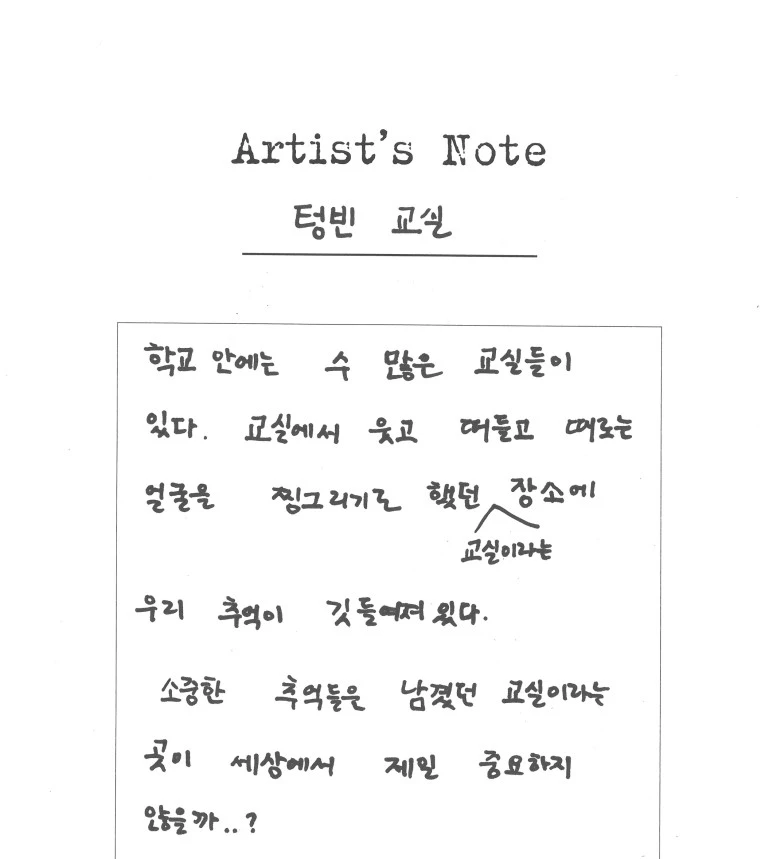 Artist's Note
텅빈 교실
학교 안에는 수 많은 교실들이
있다. 교실에서 웃고 떠들고 때로는
얼굴을 찡그리기도 했던 장소에
교실이라는
우리 추억이 깃들여져 있다.
소중한 추억들은 남겼던 교실이라는
곳이 세상에서 제일 중요하지
않을까..?